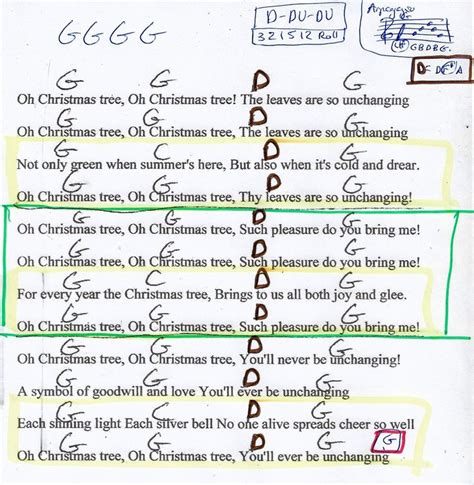 G G G G
D-DU-DU
321512 Roll
Arpeggio
G
GBDBG
G G D G
Oh Christmas tree, Oh Christmas tree! The leaves are so unchanging
G G D G
Oh Christmas tree, Oh Christmas tree, The leaves are so unchanging
G C D G
Not only green when summer's here, But also when it's cold and drear.
G G D G
Oh Christmas tree, Oh Christmas tree, Thy leaves are so unchanging!
G G D G
Oh Christmas tree, Oh Christmas tree, Such pleasure do you bring me!
G G D G
Oh Christmas tree, Oh Christmas tree, Such pleasure do you bring me!
G C D G
For every year the Christmas tree, Brings to us all both joy and glee.
G G D G
Oh Christmas tree, Oh Christmas tree, Such pleasure do you bring me!
G G D G
Oh Christmas tree, Oh Christmas tree, You'll never be unchanging!
G G D G
A symbol of goodwill and love You'll ever be unchanging
G C D G
Each shining light Each silver bell No one alive spreads cheer so well
G G D G G
Oh Christmas tree, Oh Christmas tree, You'll ever be unchanging